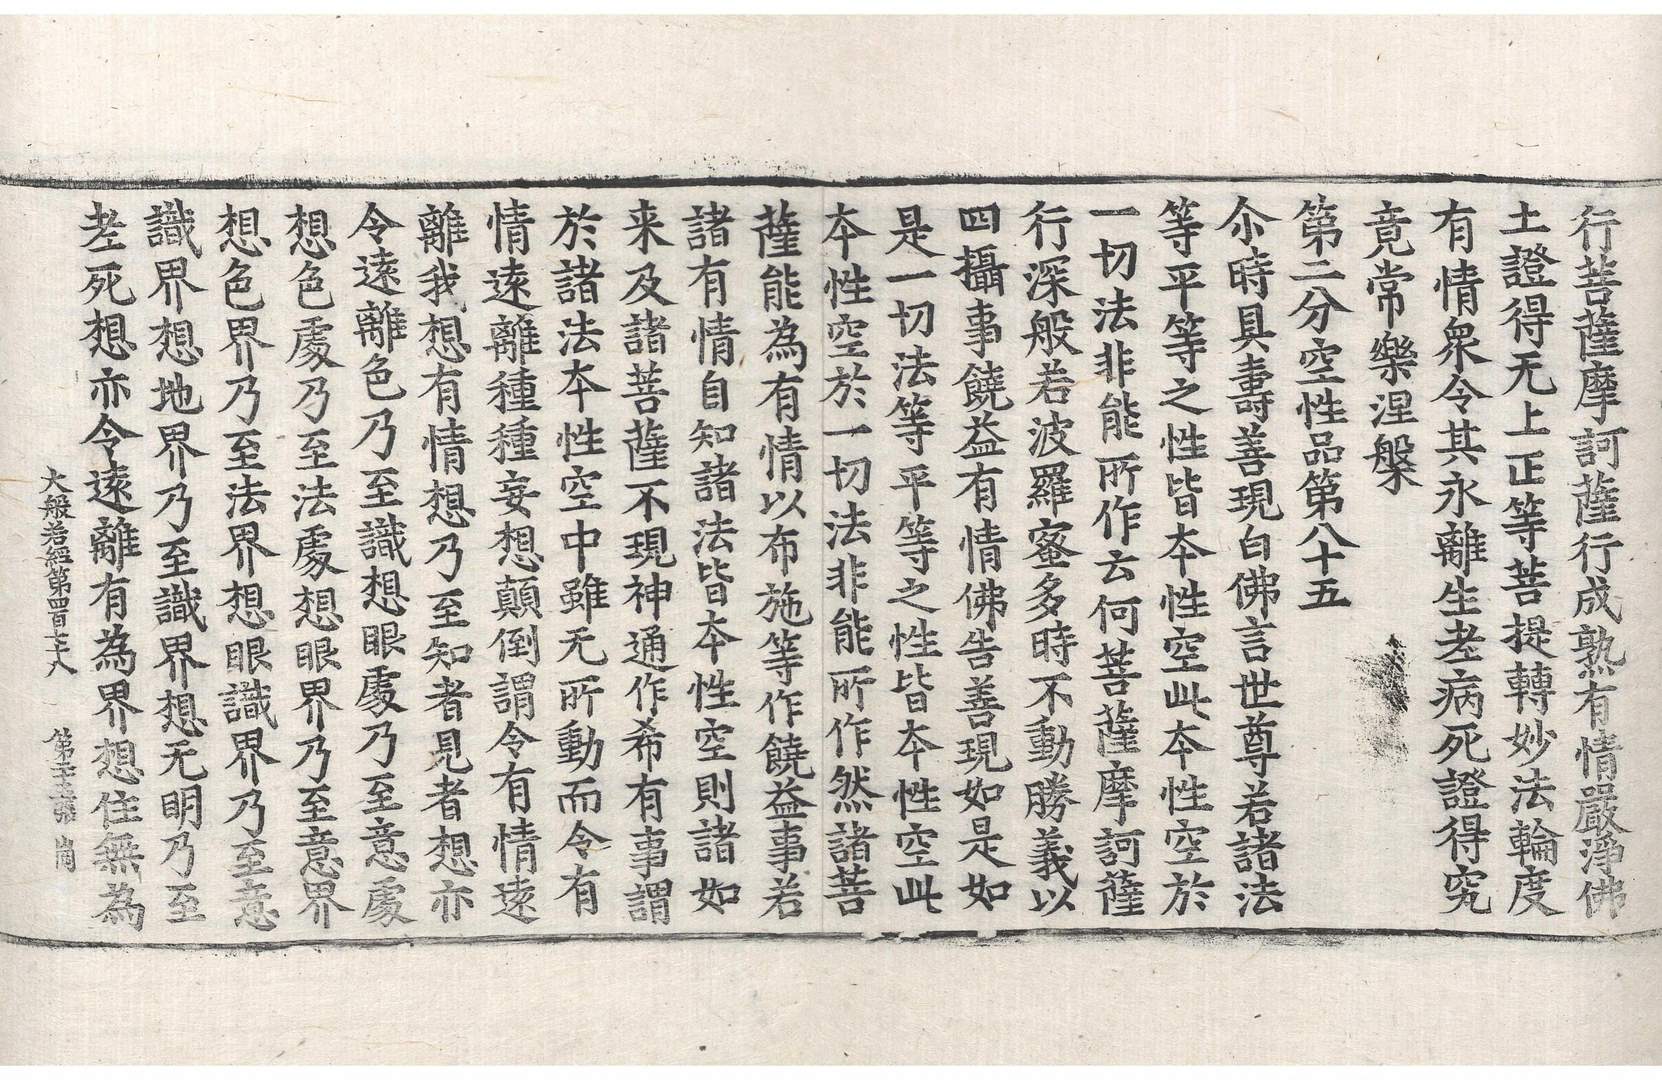 行菩薩摩訶薩行成熟有情嚴淨佛
土證得无上正等菩提轉妙法輪度
有情衆令其永離生老病死證得究
竟常樂涅槃
第二分空性品第八十五
尒時具壽善現白佛言世尊若諸法
等平等之性皆本性空此本性空於
一切法非能所作云何菩薩摩訶薩
行深般若波羅蜜多時不動勝義以
四攝事饒益有情佛告善現如是如
是一切法等平等之性皆本性空此
本性空於一切法非能所作然諸菩
薩能為有情以布施等作饒益事若
諸有情自知諸法皆本性空則諸如
来及諸菩薩不現神通作希有事謂
於諸法本性空中雖无所動而令有
情遠離種種妄想顛倒謂令有情遠
離我想有情想乃至知者見者想亦
令遠離色乃至識想眼處乃至意處
想色處乃至法處想眼界乃至意界
想色界乃至法界想眼識界乃至意
識界想地界乃至識界想无明乃至
老死想亦令遠離有為界想住無為
大般若經第四百七十八 第二十三張